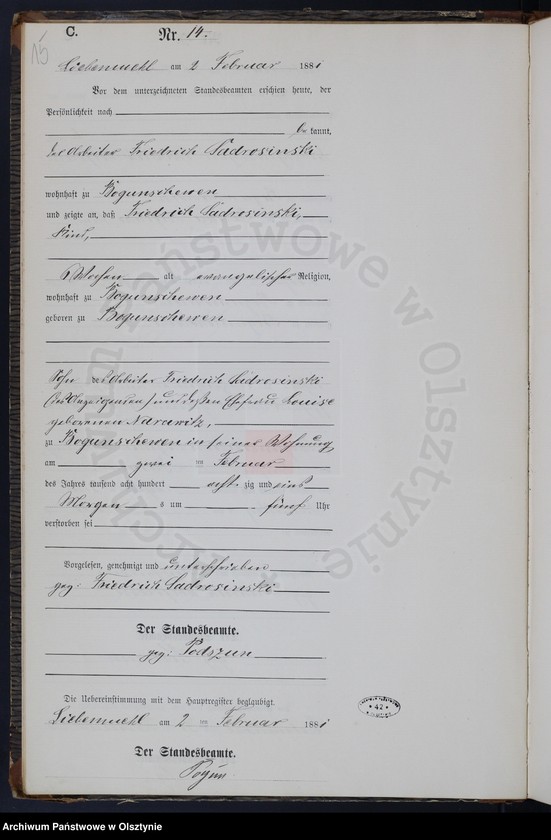 15
C.
Nr. 14.
Liebemuehl am 2 Februar 1881
Vor dem unterzeichneten Standesbeamten erschien heute, der
Persönlichkeit nach
be kannt,
der Arbeiter Friedrich Sadrosinski
wohnhaft zu Bogunschewen
und zeigte an, daß Friedrich Sadrosinski,
Kind,
6 Wochen alt evangelischer Religion,
wohnhaft zu Bogunschewen
geboren zu Bogunschewen
Sohn des Arbeiter Friedrich Sadrosinski
(des Anzeigenden) und dessen Ehefrau Louise
geborenen
zu Bogunschewen in seiner Wohnung
am zwei ten Februar
des Jahres tausend acht hundert acht zig und eins
Morgen s um fünf Uhr
verstorben sei
Vorgelesen, genehmigt und unterschrieben
gez. Friedrich Sadrosinski
Der Standesbeamte.
gez: Podszun
Die Uebereinstimmung mit dem Hauptregister beglaubigt.
Liebemuehl am 2 ten Februar 1881
Der Standesbeamte.
42
Archiwum Państwowe w Olsztynie
Archiwum Państwowe w Olsztynie